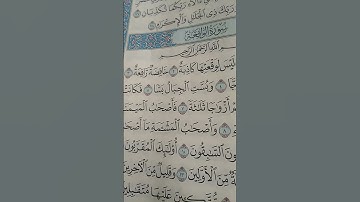 ءَالَآءِ رَبِّكُمَا تُكَذِّبَانِ
رَبِّكَ ذِى ٱلْجَلَٰلِ وَٱلْإِكْرَامِ
سُورَةُ الوَاقِعَةِ
بِسْمِ ٱللَّهِ ٱلرَّحْمَٰنِ ٱلرَّحِيمِ
لَيْسَ لِوَقْعَتِهَا كَاذِبَةٌ ٢ خَافِضَةٌ رَّافِعَةٌ
وَبُسَّتِ ٱلْجِبَالُ بَسًّا ٥ فَكَانَتْ
أَزْوَٰجًا ثَلَٰثَةً ٧ فَأَصْحَٰبُ ٱلْمَيْمَنَةِ
٨ وَأَصْحَٰبُ ٱلْمَشْـَٔمَةِ مَآ أَصْحَٰبُ
ٱلسَّٰبِقُونَ ١٠ أُو۟لَٰٓئِكَ ٱلْمُقَرَّبُونَ
مِّنَ ٱلْأَوَّلِينَ ١٣ وَقَلِيلٌ مِّنَ ٱلْءَاخِرِينَ
عَلَيْهَا مُتَقَٰبِلِينَ